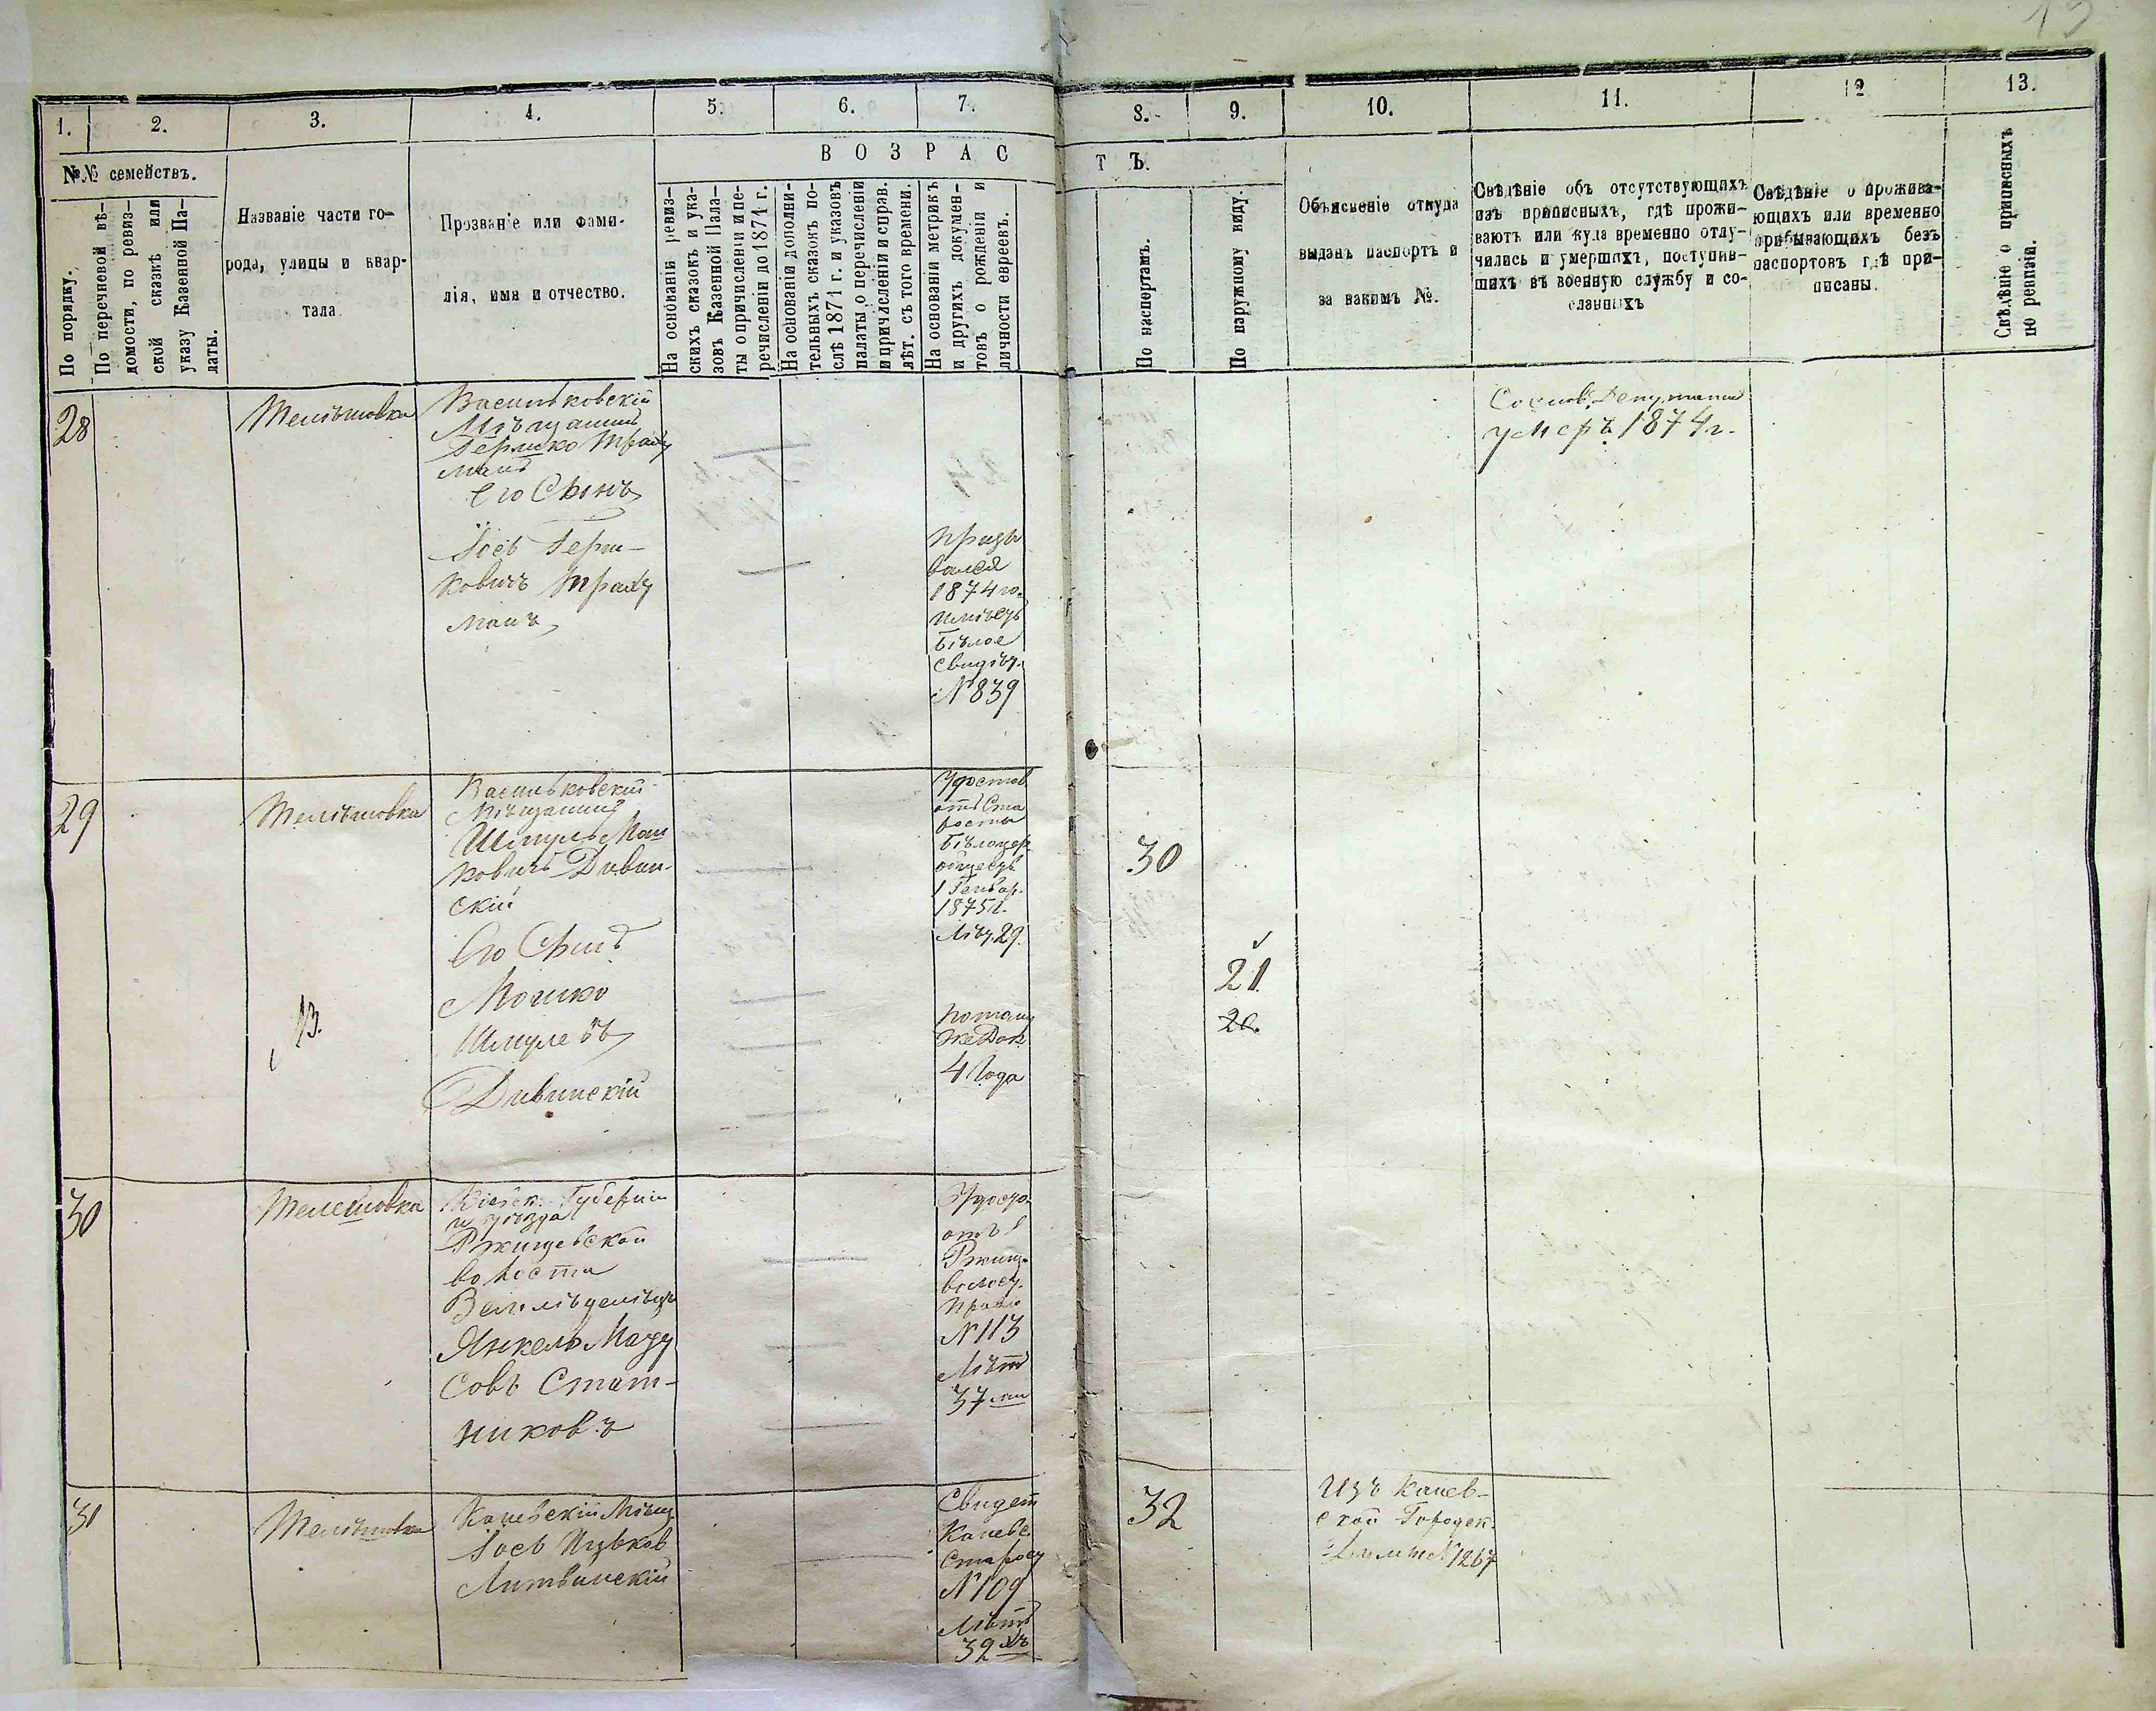 19
1.
2.
3.
4.
5.
6.
7.
8.
9.
10.
11.
12
13.
№№ семействъ.
В О З Р А С Т Ъ.
По порядку.
По перечневой вѣ-
домости, по ревиз-
ской сказкѣ или
указу Казенной Па-
латы.
Названіе части го-
рода, улицы и квар-
тала
Прозваніе или фами-
лія, имя и отчество.
На основаніи ревиз-
скихъ сказокъ и ука-
зовъ Казенной Пала-
ты о причисленіи и пе-
речисленіи до 1871 г.
На основаніи дополни-
тельныхъ сказокъ по-
слѣ 1871 г. и указовъ
палаты о перечисленіи
и причисленіи и справ.
лѣт. съ того времени.
На основаніи метрикъ
и другихъ докумен-
товъ о рожденіи и
личности евреевъ.
По паспортамъ.
По наружному виду.
Объясненіе откуда
выданъ паспортъ и
за какимъ №.
Свѣдѣніе объ отсутствующихъ
изъ приписныхъ, гдѣ прожи-
ваютъ или куда временно отлу-
чились и умершихъ, поступив-
шихъ въ военную службу и со-
сланныхъ
Свѣдѣніе о прожива-
ющихъ или временно
прибывающихъ безъ
паспортовъ гдѣ при-
писаны.
Свѣдѣніе о приписныхъ
по ревизіи.
28
Телѣшовка
Васильковскій
Мѣщанинъ
Гершко Трахт
манъ
Его Сынъ
Іосъ Герш-
ковичъ Трахт
манъ
Призы
вался
1874 го.
имѣетъ
бѣлое
свидѣт.
№ 839
умеръ 1874 г.
29
Телѣшовка
Васильковскій
Мѣщанинъ
Шмуль Мош
ковичъ Дивин-
скій
Его Сынъ
Мошко
Шмулевъ
Дивинскій
13.
Удостов
отъ Ста
росты
Бѣлоцер.
общества
1 Генвар.
1875 г.
Лѣт 29.
по тому
же Док.
4 Года
30
21
20.
30
Телешовка
Кіевск. Губерніи
и уѣзда
Ржищевской
волости
Земледѣлецъ
Янкель
совъ
никовъ
Удосто.
отъ
Ржищ.
волост.
Правле
№ 113
Лѣтъ
37 ми
31
Телѣшовка
Каневскій Мѣщ.
Іось Ицьков
Литвинскій
Свидет
Каневс.
Старост
№ 109
Лѣтъ
32 хъ
32
Изъ Канев-
ской Городск.
№ 1267